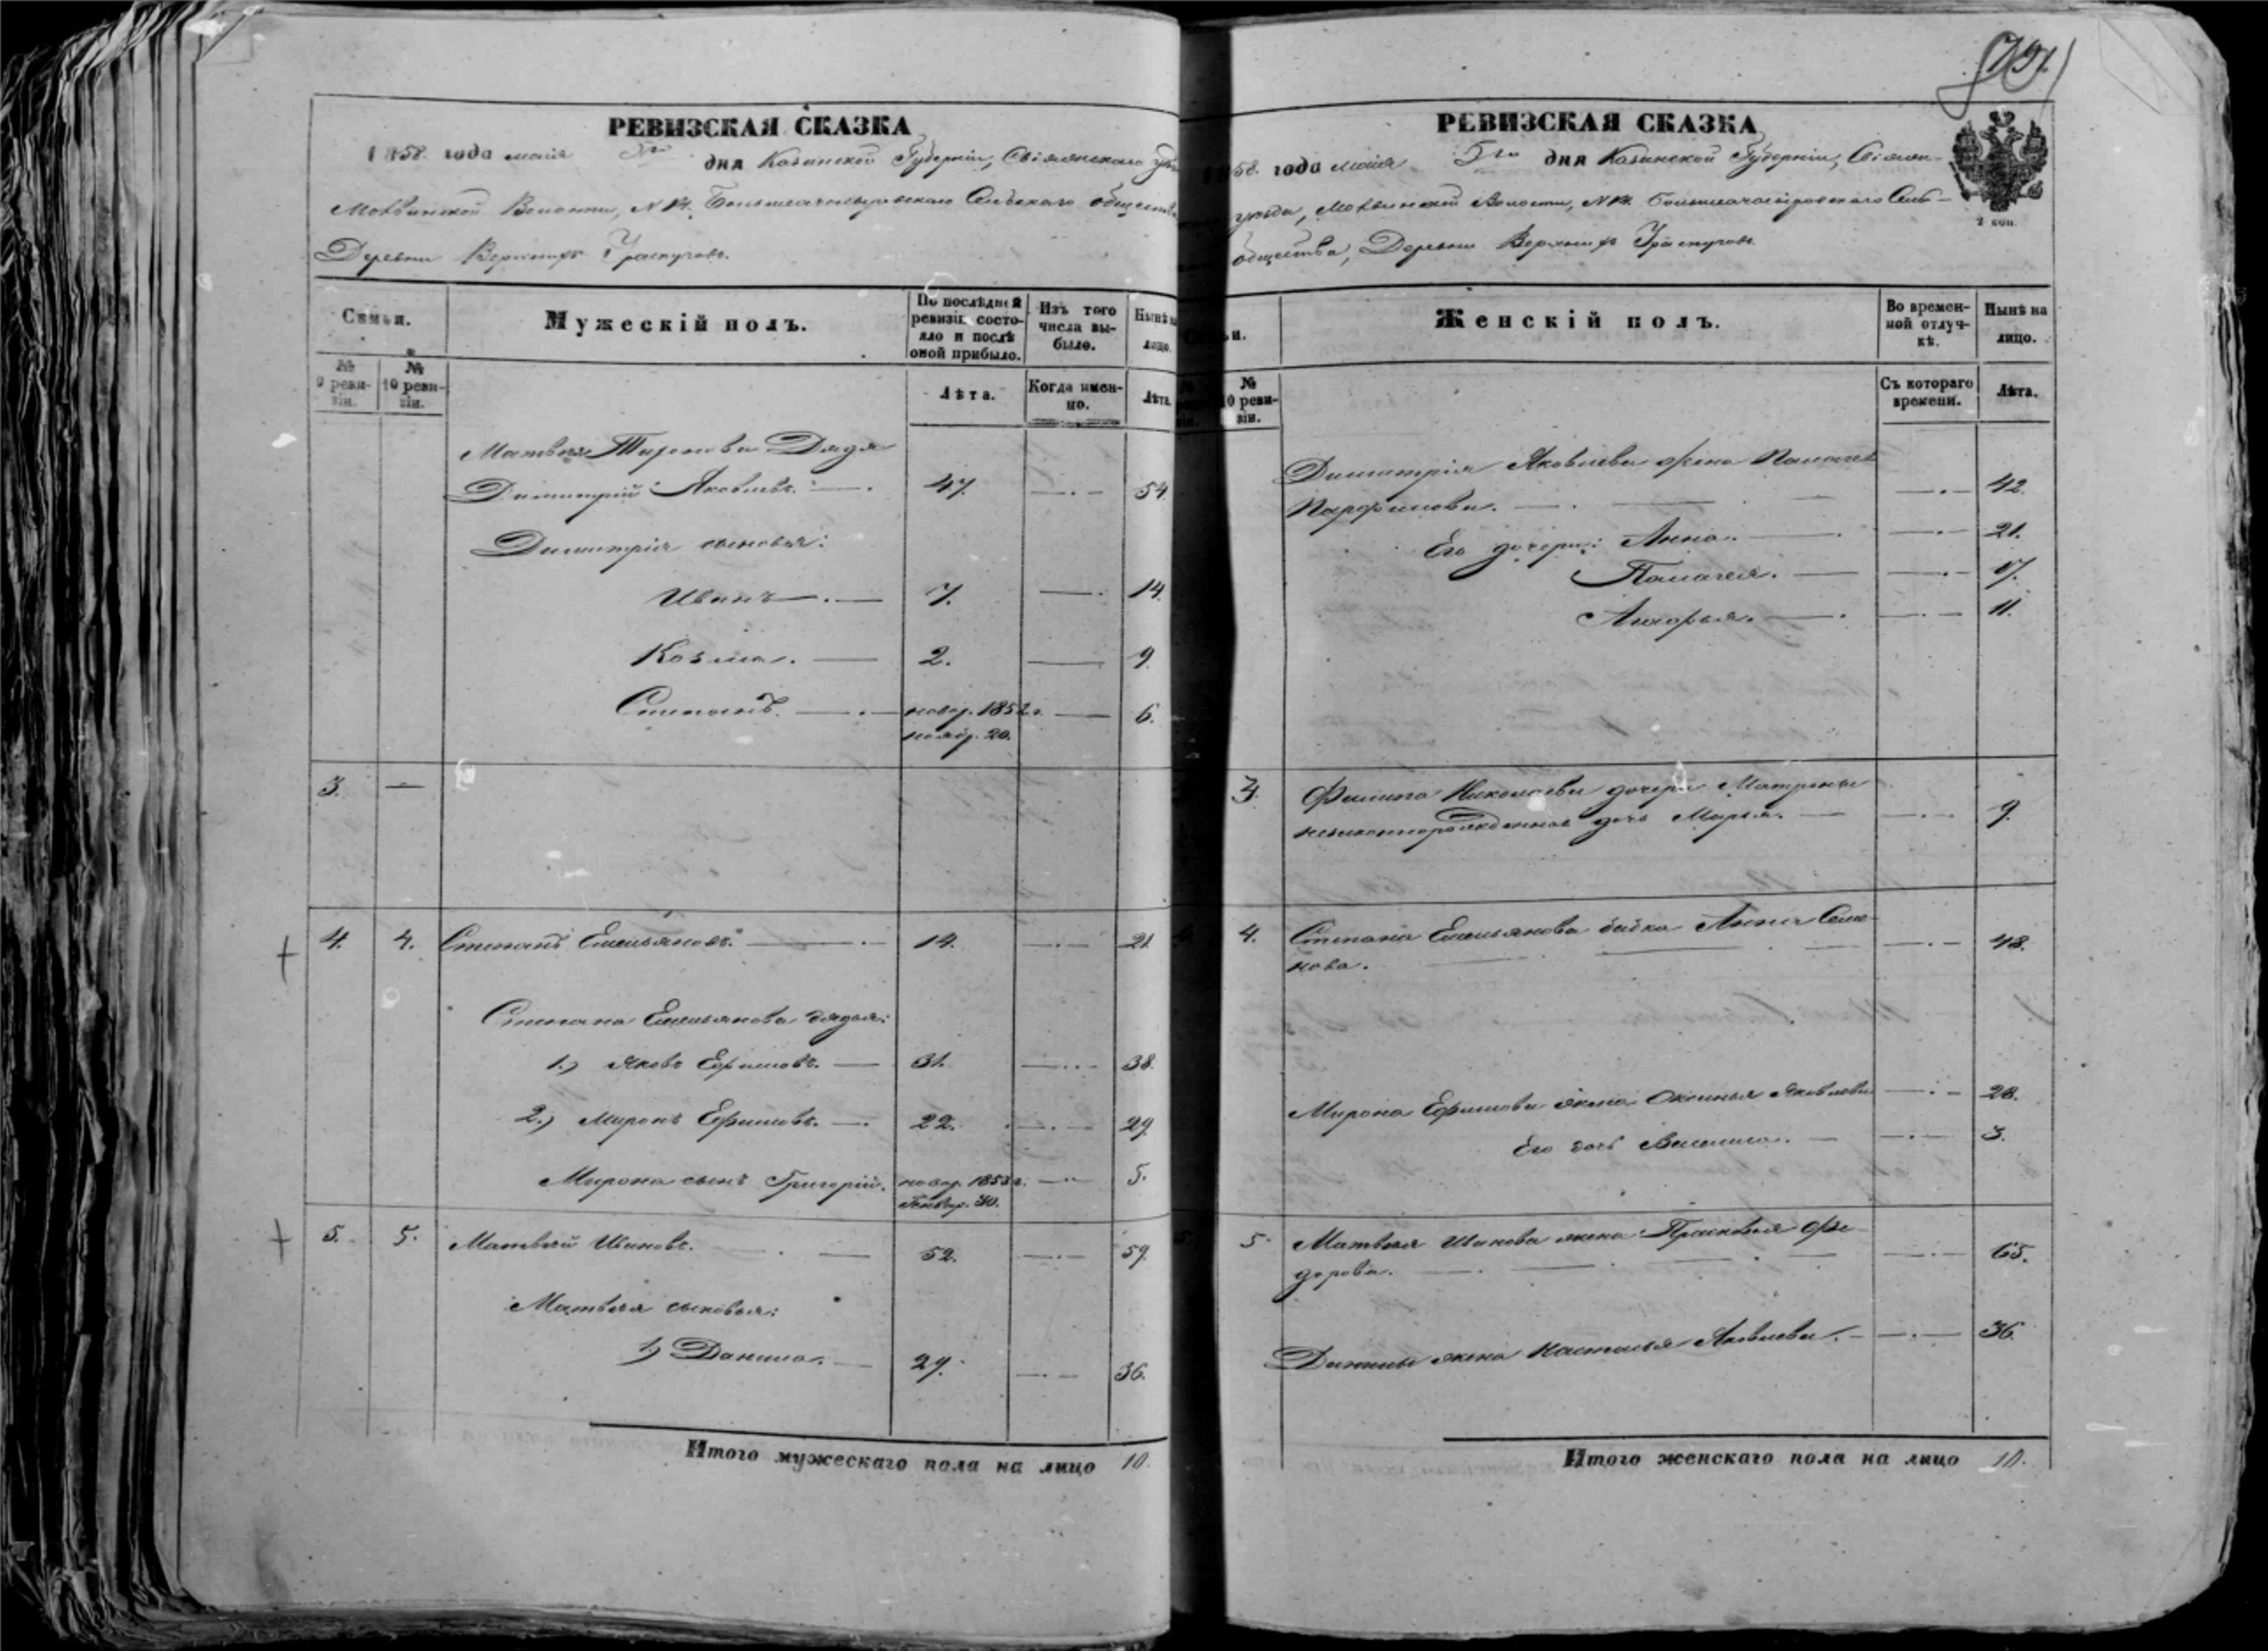 РЕВИЗСКАЯ СКАЗКА
1858. года маія 5го дня Казанской Губерніи, Свіяжскаго
Волости, № Сельскаго общества
Деревни Верхнихъ
Семьи.
№ 9 ревизіи.
№ 10 ревизіи.
Мужескій полъ.
По послѣдней
ревизіи состо-
яло и послѣ
оной прибыло.
Изъ того
числа вы-
было.
Нынѣ на
лицо.
Лѣта.
Когда имен-
но.
Лѣта.
Матвея Дядя
Димитрій Яковлевъ. — 47. — 54.
Димитрія сыновья:
Иванъ — 7. — 14.
Козма. — 2. — 9.
Степанъ. — новор. 1852 г. — 6.
ноябр. 20.
3. —
4. 4. Степанъ Емельяновъ. — 14. — 21.
Степана Емельянова дядья:
1.) Яковъ Ефимовъ. — 31. — 38.
2.) Миронъ Ефимовъ. — 22. — 29.
Мирона сынъ Григорій. новор. 1853 г. — 5.
Генвар. 30.
5. 5. Матвей Ивановъ. — 52. — 59.
Матвея сыновья:
1) Данило. — 29. — 36.
Итого мужескаго пола на лицо 10.
РЕВИЗСКАЯ СКАЗКА
1858. года маія 5го дня Казанской Губерніи, Свіяж-
уѣзда, Волости, № Сель-
общества, Деревни Верхнихъ
2 коп.
№
10 реви-
зіи.
Женскій полъ.
Во времен-
ной отлуч-
кѣ.
Нынѣ на
лицо.
Съ котораго
времени.
Лѣта.
Димитрія Яковлева жена Палагея
Парфинова. — 42.
Его дочери: Анна. — 21.
Палагея. — 17.
— 11.
3. Филипа Николаева дочери Матрены
незаконнорожденная дочь Марья. — 9.
4. Степана Емельянова бабка Анна Семе-
нова. — 48.
Мирона Ефимова жена Оксинья Яковлева — 28.
Его дочь Василиса. — 3.
5. Матвея Иванова жена Прасковья Фе-
дорова. — 65.
Данилы жена Настасья Яковлева. — 36.
Итого женскаго пола на лицо 10.